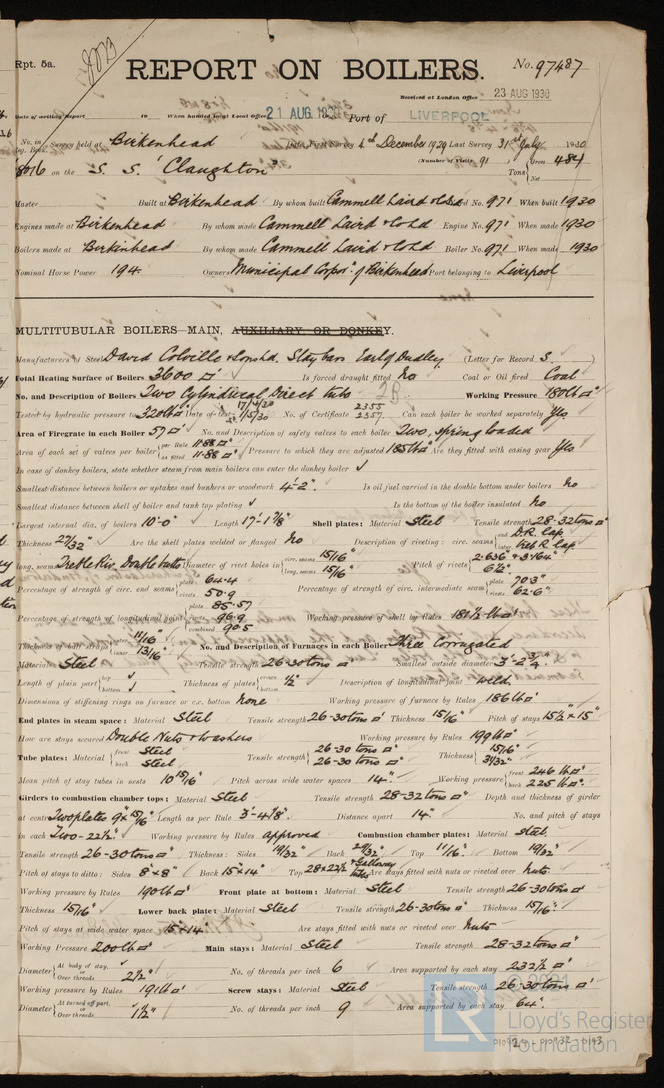 Rpt. 5a.
REPORT ON BOILERS.
No. 97487
Received at London Office 23 AUG 1930
Date of writing Report 19 When handed in at Local Office 21 AUG 1930 Port of LIVERPOOL
No. in Reg. Book. Survey held at Birkenhead Date, First Survey 4th December 1929 Last Survey 31st July 1930
(Number of Visits 91
on the S. S. "Claughton" Tons { Gross 484 Net
Master Built at Birkenhead By whom built Cammell Laird & Co Ld Yard No. 971 When built 1930
Engines made at Birkenhead By whom made Cammell Laird & Co Ld Engine No. 971 When made 1930
Boilers made at Birkenhead By whom made Cammell Laird & Co Ld Boiler No. 971 When made 1930
Nominal Horse Power 194 Owners Municipal Corpor. of Birkenhead Port belonging to Liverpool
MULTITUBULAR BOILERS—MAIN, AUXILIARY, OR DONKEY.
Manufacturers of Steel David Colville & Sons Ltd. Stay bars Earl of Dudley (Letter for Record S.)
Total Heating Surface of Boilers 3600 □' Is forced draught fitted No Coal or Oil fired Coal
No. and Description of Boilers Two Cylindrical Direct tube Working Pressure 180 lb □"
Tested by hydraulic pressure to 320 lb □" Date of test 17/4/30 1/5/30 No. of Certificate 2355 2357 Can each boiler be worked separately Yes
Area of Firegrate in each Boiler 57 □' No. and Description of safety valves to each boiler Two, spring loaded
Area of each set of valves per boiler { per Rule 11.88 □" as fitted 11.88 □" Pressure to which they are adjusted 185 lb □" Are they fitted with easing gear Yes
In case of donkey boilers, state whether steam from main boilers can enter the donkey boiler ✓
Smallest distance between boilers or uptakes and bunkers or woodwork 4'-2" Is oil fuel carried in the double bottom under boilers No
Smallest distance between shell of boiler and tank top plating ✓ Is the bottom of the boiler insulated No
Largest internal dia. of boilers 10'-0" Length 17'-1 7/8" Shell plates: Material Steel Tensile strength 28-32 tons □"
Thickness 27/32" Are the shell plates welded or flanged No Description of riveting: circ. seams { end D.R. Lap inter. Treb R. Lap
long. seams Treble Riv. Double butts Diameter of rivet holes in { circ. seams 15/16" long. seams 15/16" Pitch of rivets { 2.636" & 3.164" 6 1/2"
Percentage of strength of circ. end seams { plate 64.4 rivets 50.9 Percentage of strength of circ. intermediate seam { plate 70.3" rivets 62.6"
Percentage of strength of longitudinal joint { plate 85.57 rivets 96.9 combined 90.5 Working pressure of shell by Rules 181 1/2 lb □"
11/16" inner 13/16" No. and Description of Furnaces in each Boiler Three Corrugated
Material Steel Tensile strength 26-30 tons □" Smallest outside diameter 3'-2 3/4"
Length of plain part { top bottom Thickness of plates { crown bottom 1/2" Description of longitudinal joint Weld
Dimensions of stiffening rings on furnace or c.c. bottom None Working pressure of furnace by Rules 186 lb □"
End plates in steam space: Material Steel Tensile strength 26-30 tons □" Thickness 15/16" Pitch of stays 15 1/2" x 15"
How are stays secured Double Nuts & washers Working pressure by Rules 199 lb □"
Tube plates: Material { front Steel back Steel Tensile strength { 26-30 tons □" 26-30 tons □" Thickness { 15/16" 31/32"
Mean pitch of stay tubes in nests 10 15/16" Pitch across wide water spaces 14" Working pressure { front 246 lb □" back 225 lb □"
Girders to combustion chamber tops: Material Steel Tensile strength 28-32 tons □" Depth and thickness of girder
at centre Two plates 9" x 15/16" Length as per Rule 3'-4 7/8" Distance apart 14" No. and pitch of stays
in each Two-22 1/2" Working pressure by Rules approved Combustion chamber plates: Material Steel
Tensile strength 26-30 tons □" Thickness: Sides 19/32" Back 20/32" Top 11/16" Bottom 19/32"
Pitch of stays to ditto: Sides 8" x 8" Back 15" x 14" Top 28 x 22 1/2 & Galloway tubes Are stays fitted with nuts or riveted over Nuts
Working pressure by Rules 190 lb □" Front plate at bottom: Material Steel Tensile strength 26-30 tons □"
Thickness 15/16" Lower back plate: Material Steel Tensile strength 26-30 tons □" Thickness 15/16"
Pitch of stays at wide water space 15" x 14" Are stays fitted with nuts or riveted over Nuts
Working Pressure 200 lb □" Main stays: Material Steel Tensile strength 28-32 tons □"
Diameter { At body of stay, or Over threads 2 1/2" No. of threads per inch 6 Area supported by each stay 232 1/2 □"
Working pressure by Rules 191 lb □" Screw stays: Material Steel Tensile strength 26-30 tons □"
Diameter { At turned off part, or Over threads 1 1/2" No. of threads per inch 9 Area supported by each stay 64"
© 2021
LR
Lloyd's Register
Foundation